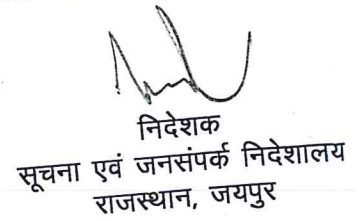 निदेशक
सूचना एवं जनसंपर्क निदेशालय
राजस्थान, जयपुर